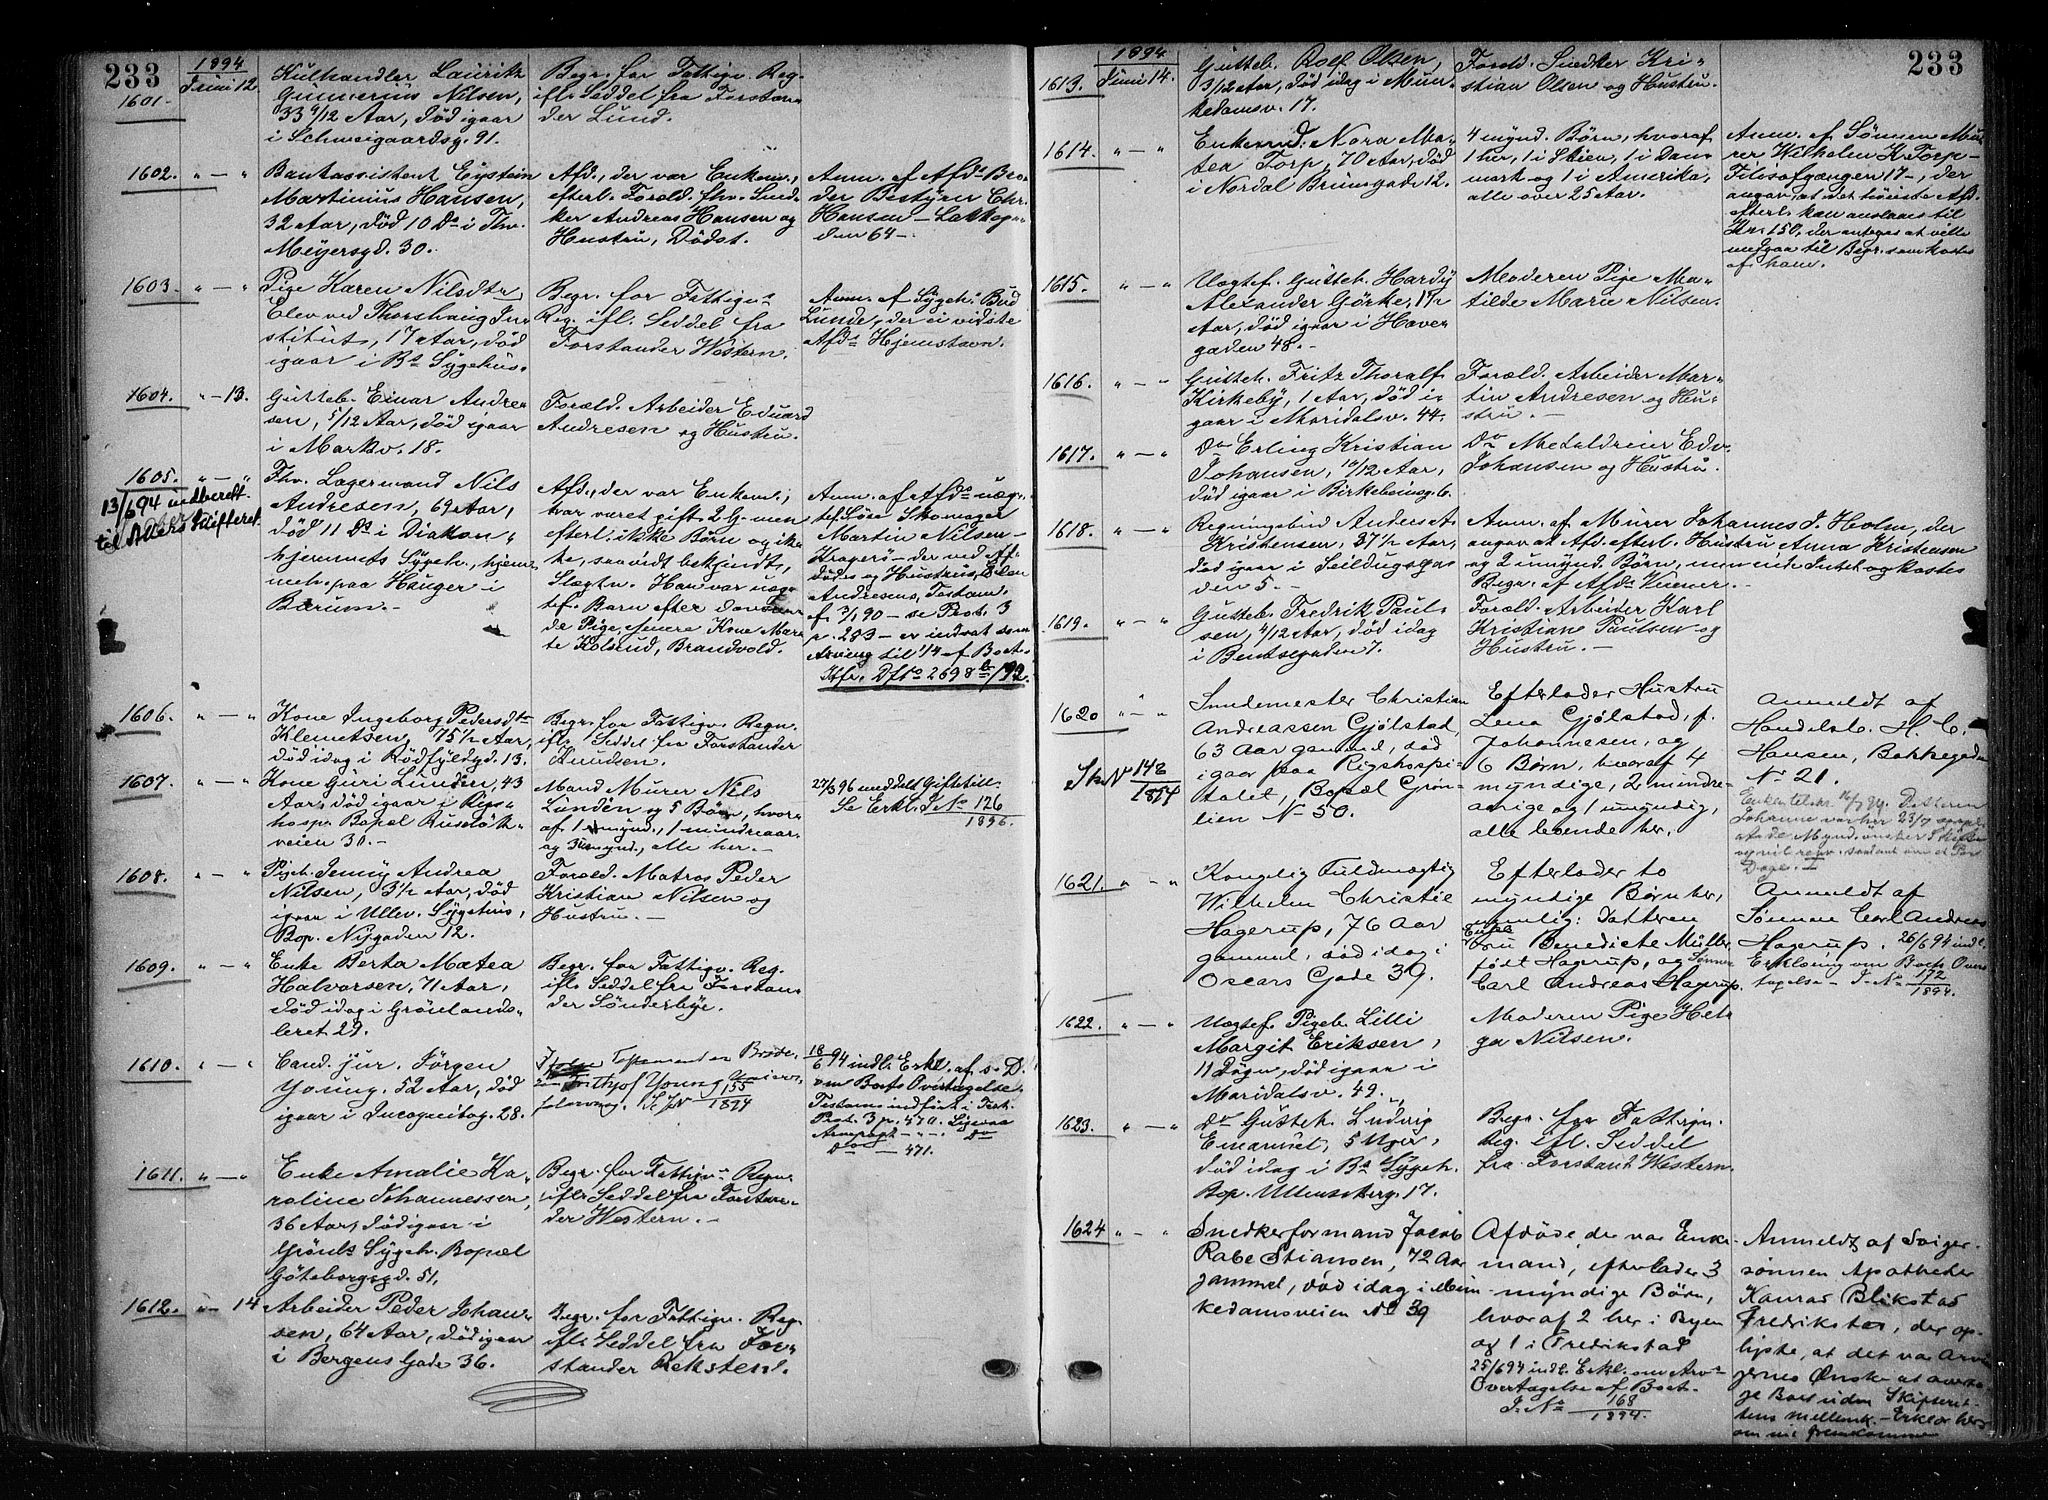 233
1894
1601.
Juni 12.
Kulhandler Lauritz
Gunnerius Nilsen,
33 2/12 Aar, död igaar
i Schweigaardsg. 91.
Begr. for Fattigv. Reg.
ifl. Seddel fra Forstan-
der Lund.
1602.
" — "
Bankassistent Eystein
Martinius Hansen,
32 Aar, död 10 Ds i Thv.
Meyersgd. 30.
Afd., der var Enkem.,
efterl. Forald. fhv. Snid-
ker Andreas Hansen og
Hustru, Dödst.
Anm. af Afds Bro-
der Bestyrer Chr.
Hansen — Lakkega-
den 64 —
1603.
" — "
Pige Karen Nilsdtr
Elev ved Thorshaug In-
stitut, 17 Aar, död
igaar i Bs Sygehus.
Begr. for Fattigv.
Reg. ifl. Seddel fra
Forstander Western.
Anm. af Sygeh. Bud
Lunde, der ei vidste
Afds Hjemstavn.
1604.
" — 13.
Gutteb. Einar Andre-
sen, 5/12 Aar, död igaar
i Markv. 18.
Foræld. Arbeider Eduard
Andresen og Hustru.
1605.
" — "
13/6 94 indberett.
til Akers Skifteret.
Fhv. Lagermand Nils
Andresen, 69 Aar,
död 11 Ds i Diakon-
hjemmets Sygeh., hjem-
meh. paa Hauger i
Bærum. —
Afd., der var Enkem.,
har været gift 2 G. men
efterl. ikke Börn og ik-
ke, saavidt bekjendt,
Slægtn. Han var uæg-
tef. Barn efter daværen-
de Pige, senere Kone Mare-
te Kolsrud, Brandvold.
Anm. af Afds uæg-
tef. Sön Skomager
Martin Nilsen —
Kragerö — der ved Af-
dödes og Hustrus, Elen
Andresens, Testam.
af 3/1 90 — se Prot. 3
p. 283 — er indsat som
Arving til 1/4 af Boet.
1606.
" — "
Kone Ingeborg Pedersdtr
Klemetsen, 75 1/2 Aar,
död idag i Rödfyldgd. 13.
Begr. for Fattigv. Regn.
ifl. Seddel fra Forstander
Knudsen.
1607.
" — "
Kone Guri Lundén, 43
Aar, död igaar i Rigs-
hosp. Bopæl Ruselök-
veien 30. —
Mand Murer Nils
Lundén og 5 Börn, hvor-
af 1 mynd., 1 mindreaar.
og 3 umynd., alle her. —
27/3 96 meddelt Giftetill.
Se Erkl. J. No 126
1896.
1608.
" — "
Pigeb. Jenny Andrea
Nilsen, 3 1/2 Aar, död
igaar i Ullev. Sygehus,
Bop. Nygaden 12.
Forald. Matros Peder
Kristian Nilsen og
Hustru. —
1609.
" — "
Enke Berta Matea
Halvorsen, 71 Aar,
död idag i Grönlands-
leret 29.
Begr. for Fattigv. Reg.
ifl. Seddel fra Forstan-
der Sönderbye.
1610.
" — "
Cand. jur. Jörgen
Young. 52 Aar, död
igaar i Incognitog. 28.
Testament en Broder,
Frithjof Young
Se JN 155
1894
18/6 94 indl. Erkl. af s. D.
om Boets Overtagelse.
Testam. indfört i Test.
Prot. 3 p. 470. Ligesaa
Do — 471.
1611.
" — "
Enke Amalie Ka-
roline Johannessen,
36 Aar, död igaar i
Grönls Sygeh. Bopæl
Göteborgsgd. 51.
Begr. for Fattigv. Regn.
ifl. Seddel fra Forstan-
der Western. —
1612.
" — 14
Arbeider Peder Johan-
sen, 64 Aar, död igaar
i Bergens Gade 36.
Begr. for Fattigv. Reg.
ifl. Seddel fra For-
stander Reksten.
233
1894
1613.
Juni 14.
Gutteb. Rolf Olsen,
3/12 Aar, död idag i Mun-
kedamsv. 17.
Forald. Snedker Kri-
stian Olsen og Hustru.
1614.
" — "
Enkemd. Nora Ma-
tea Torp, 70 Aar, död
i Nordal Brunsgade 12.
4 mynd. Börn, hvoraf
1 her, 1 i Skien, 1 i Dan-
mark og 1 i Amerika,
alle over 25 Aar.
Anm. af Sönnen Mu-
rer Wilhelm K. Torp —
Filosofgangen 17 —, der
angav, at det höieste Afd.
efterl. kan anslaaes til
Kr. 150, der antages at ville
medgaa til Begr. som kostes
af ham.
1615.
" — "
Uægtef. Gutteb. Hardy
Alexander Görke, 1 1/2
Aar, död igaar i Haver-
gaden 48. —
Moderen Pige Ma-
tilde Marie Nilsen.
1616.
" — "
Gutteb. Fritz Thoralf
Kirkeby, 1 Aar, död i-
gaar i Maridalsv. 44.
Foræld. Arbeider Mar-
tin Andresen og Hu-
stru. —
1617.
" — "
Do Erling Kristian
Johansen, 10/12 Aar,
död igaar i Birkebeinerg. 6.
Do Metaldreier Edv.
Johansen og Hustru.
1618.
" — "
Regningsbud Anders A.
Kristensen, 37 1/2 Aar,
död igaar i Seildugsga-
den 5. —
Anm. af Murer Johannes J. Holm, der
angav at Afd. efterl. Hustru Anna Kristensen
og 2 umynd. Börn, men ende Intet og kostes
Begr. af Afds Venner. —
1619.
" — "
Gutteb. Fredrik Paul-
sen, 4/12 Aar, död idag
i Bentsegaden 7.
Forald. Arbeider Karl
Kristian Paulsen og
Hustru. —
1620
" — "
Sk. No 142
1894
Smedemester Christian
Andreassen Gjölstad,
63 Aar gammel, död
igaar paa Rigshospi-
talet, Bopæl Grön-
lien No 50.
Efterlader Hustru
Lena Gjölstad, f.
Johannesen, og
6 Börn, hvoraf 4
myndige, 2 mindre-
aarige og 1 umyndig,
alle boende her.
Anmeldt af
Handelsb. H. C.
Hansen, Bakkegaden
No 21.
1621.
" — "
Kongelig Fuldmægtig
Wilhelm Christie
Hagerup, 76 Aar
gammel, död idag i
Oscars Gade 39.
Efterlader to
myndige Börn her,
nemlig: Datteren
Enkefru Benedicte Müller
födt Hagerup, og Sönnen
Carl Andreas Hagerup.
Anmeldt af
Sönnen Carl Andreas
Hagerup. 26/6 94 indl.
Erklæring om Boets Over-
tagelse — J. No 172
1894.
1622.
" — "
Uægtef. Pigeb. Lilli
Margit Eriksen,
11 Döger, död igaar i
Maridalsv. 49. —
Moderen Pige Hel-
ga Nilsen.
1623.
" — "
Do Gutteb. Ludvig
Emanuel, 5 Uger,
död idag i Bs Sygeh.
Bop. Ullensakerg. 17.
Begr. for Fattigv.
Reg. ifl. Seddel
fra Forstand. Western.
1624
" — "
Snedkerformand Jacob
Rabe Stiansen, 72 Aar
gammel, död idag i Mun-
kedamsveien No 39
Afdöde, der var Enke-
mand, efterlader 3
myndige Börn,
hvoraf 2 her i Byen
og 1 i Fredrikstad
25/6 94 indl. Erkl. om Arv.
Overtagelse af Boet.
J. No 168
1894.
Anmeldt af Sviger-
sönnen Apotheker
Konrad Blikstad
Fredrikstad, der op-
lyste, at det var Arvin-
gernes Önske at overta-
ge Boet uden Skifteret-
tens mellemk. — Erklær. her-
om vil fremkomme